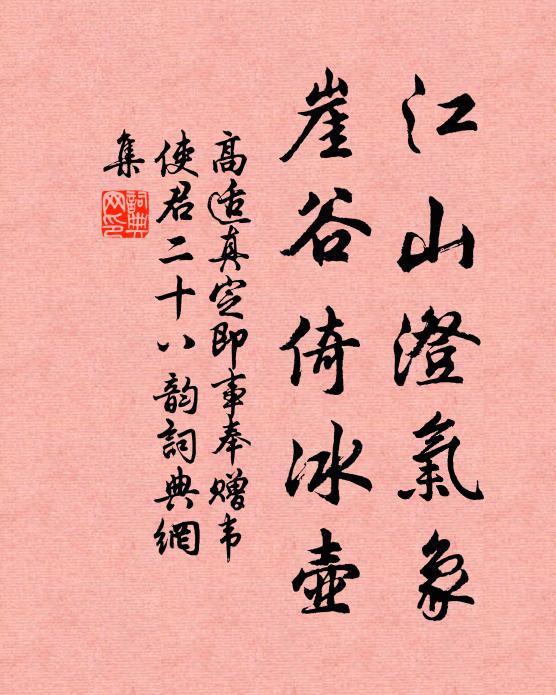 江山澄氣象
崖谷倚冰壺
高适真定即事奉赠韦
使君二十八韵詞典網
集
詞典
网印